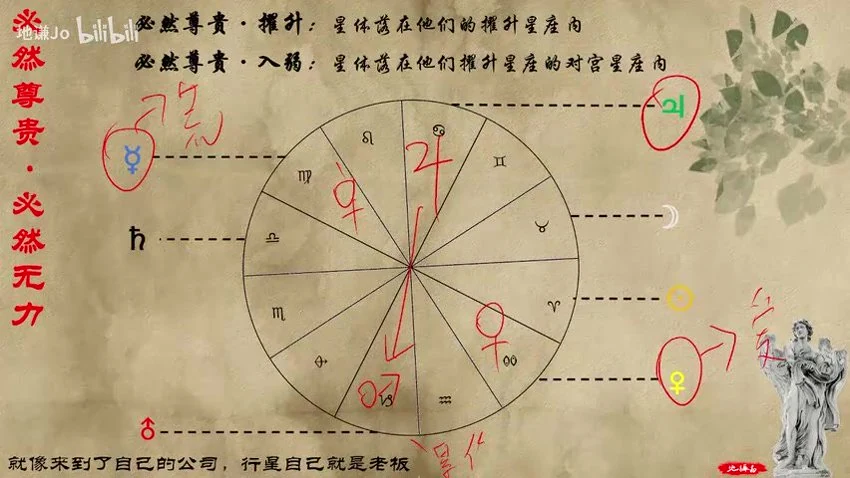 地谦Jo bilibili
必然尊貴·擢升：星体落在他们的擢升星座内
必然尊貴·入弱：星体落在他们擢升星座的对宫星座内
必然尊贵·必然无力
☿
♄
♂
♃
☽
☉
♀
♌
♋
♊
♍
♉
♎
♈
♏
♓
♐
♑
♒
♃
♀
♂
就像来到了自己的公司，行星自己就是老板